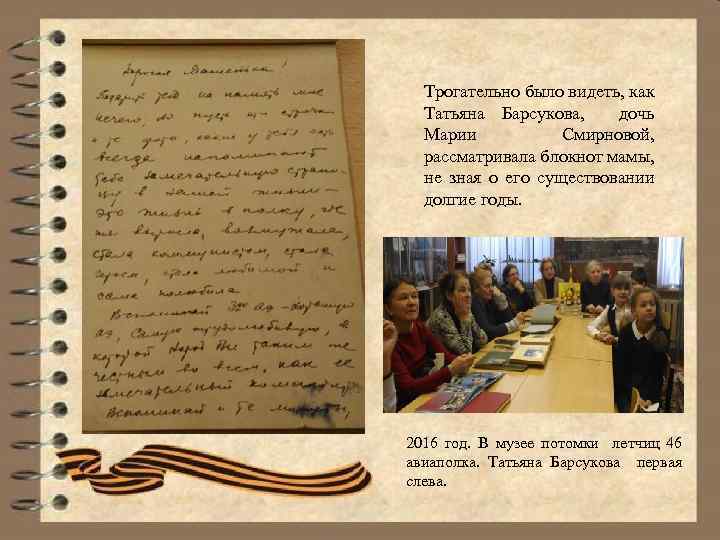 Дорогая Машенька!
тебе на память мне
нечего, но пусть эти строчки
и те фото, какие у тебя есть
всегда напоминают
тебе замечательную страни-
цу в нашей жизни –
это жизнь в полку, где
ты выросла, возмужала,
стала коммунистом, стала
героем, стала любимой и
сама полюбила.
Вспоминай
самую трудолюбивую, в
которой народ был таким же
честным во всем, как ее
замечательный командир
Вспоминай и те минуты,
Трогательно было видеть, как
Татьяна Барсукова, дочь
Марии Смирновой,
рассматривала блокнот мамы,
не зная о его существовании
долгие годы.
2016 год. В музее потомки летчиц 46
авиаполка. Татьяна Барсукова первая
слева.